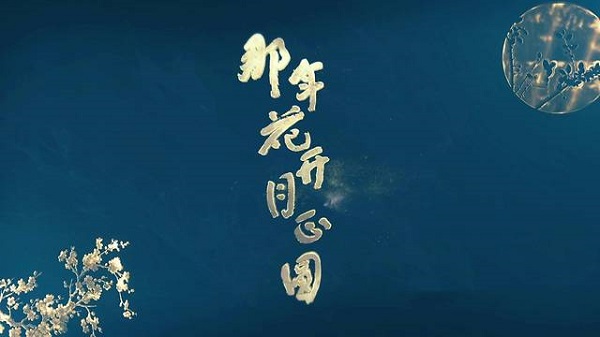 那年花开月正圆